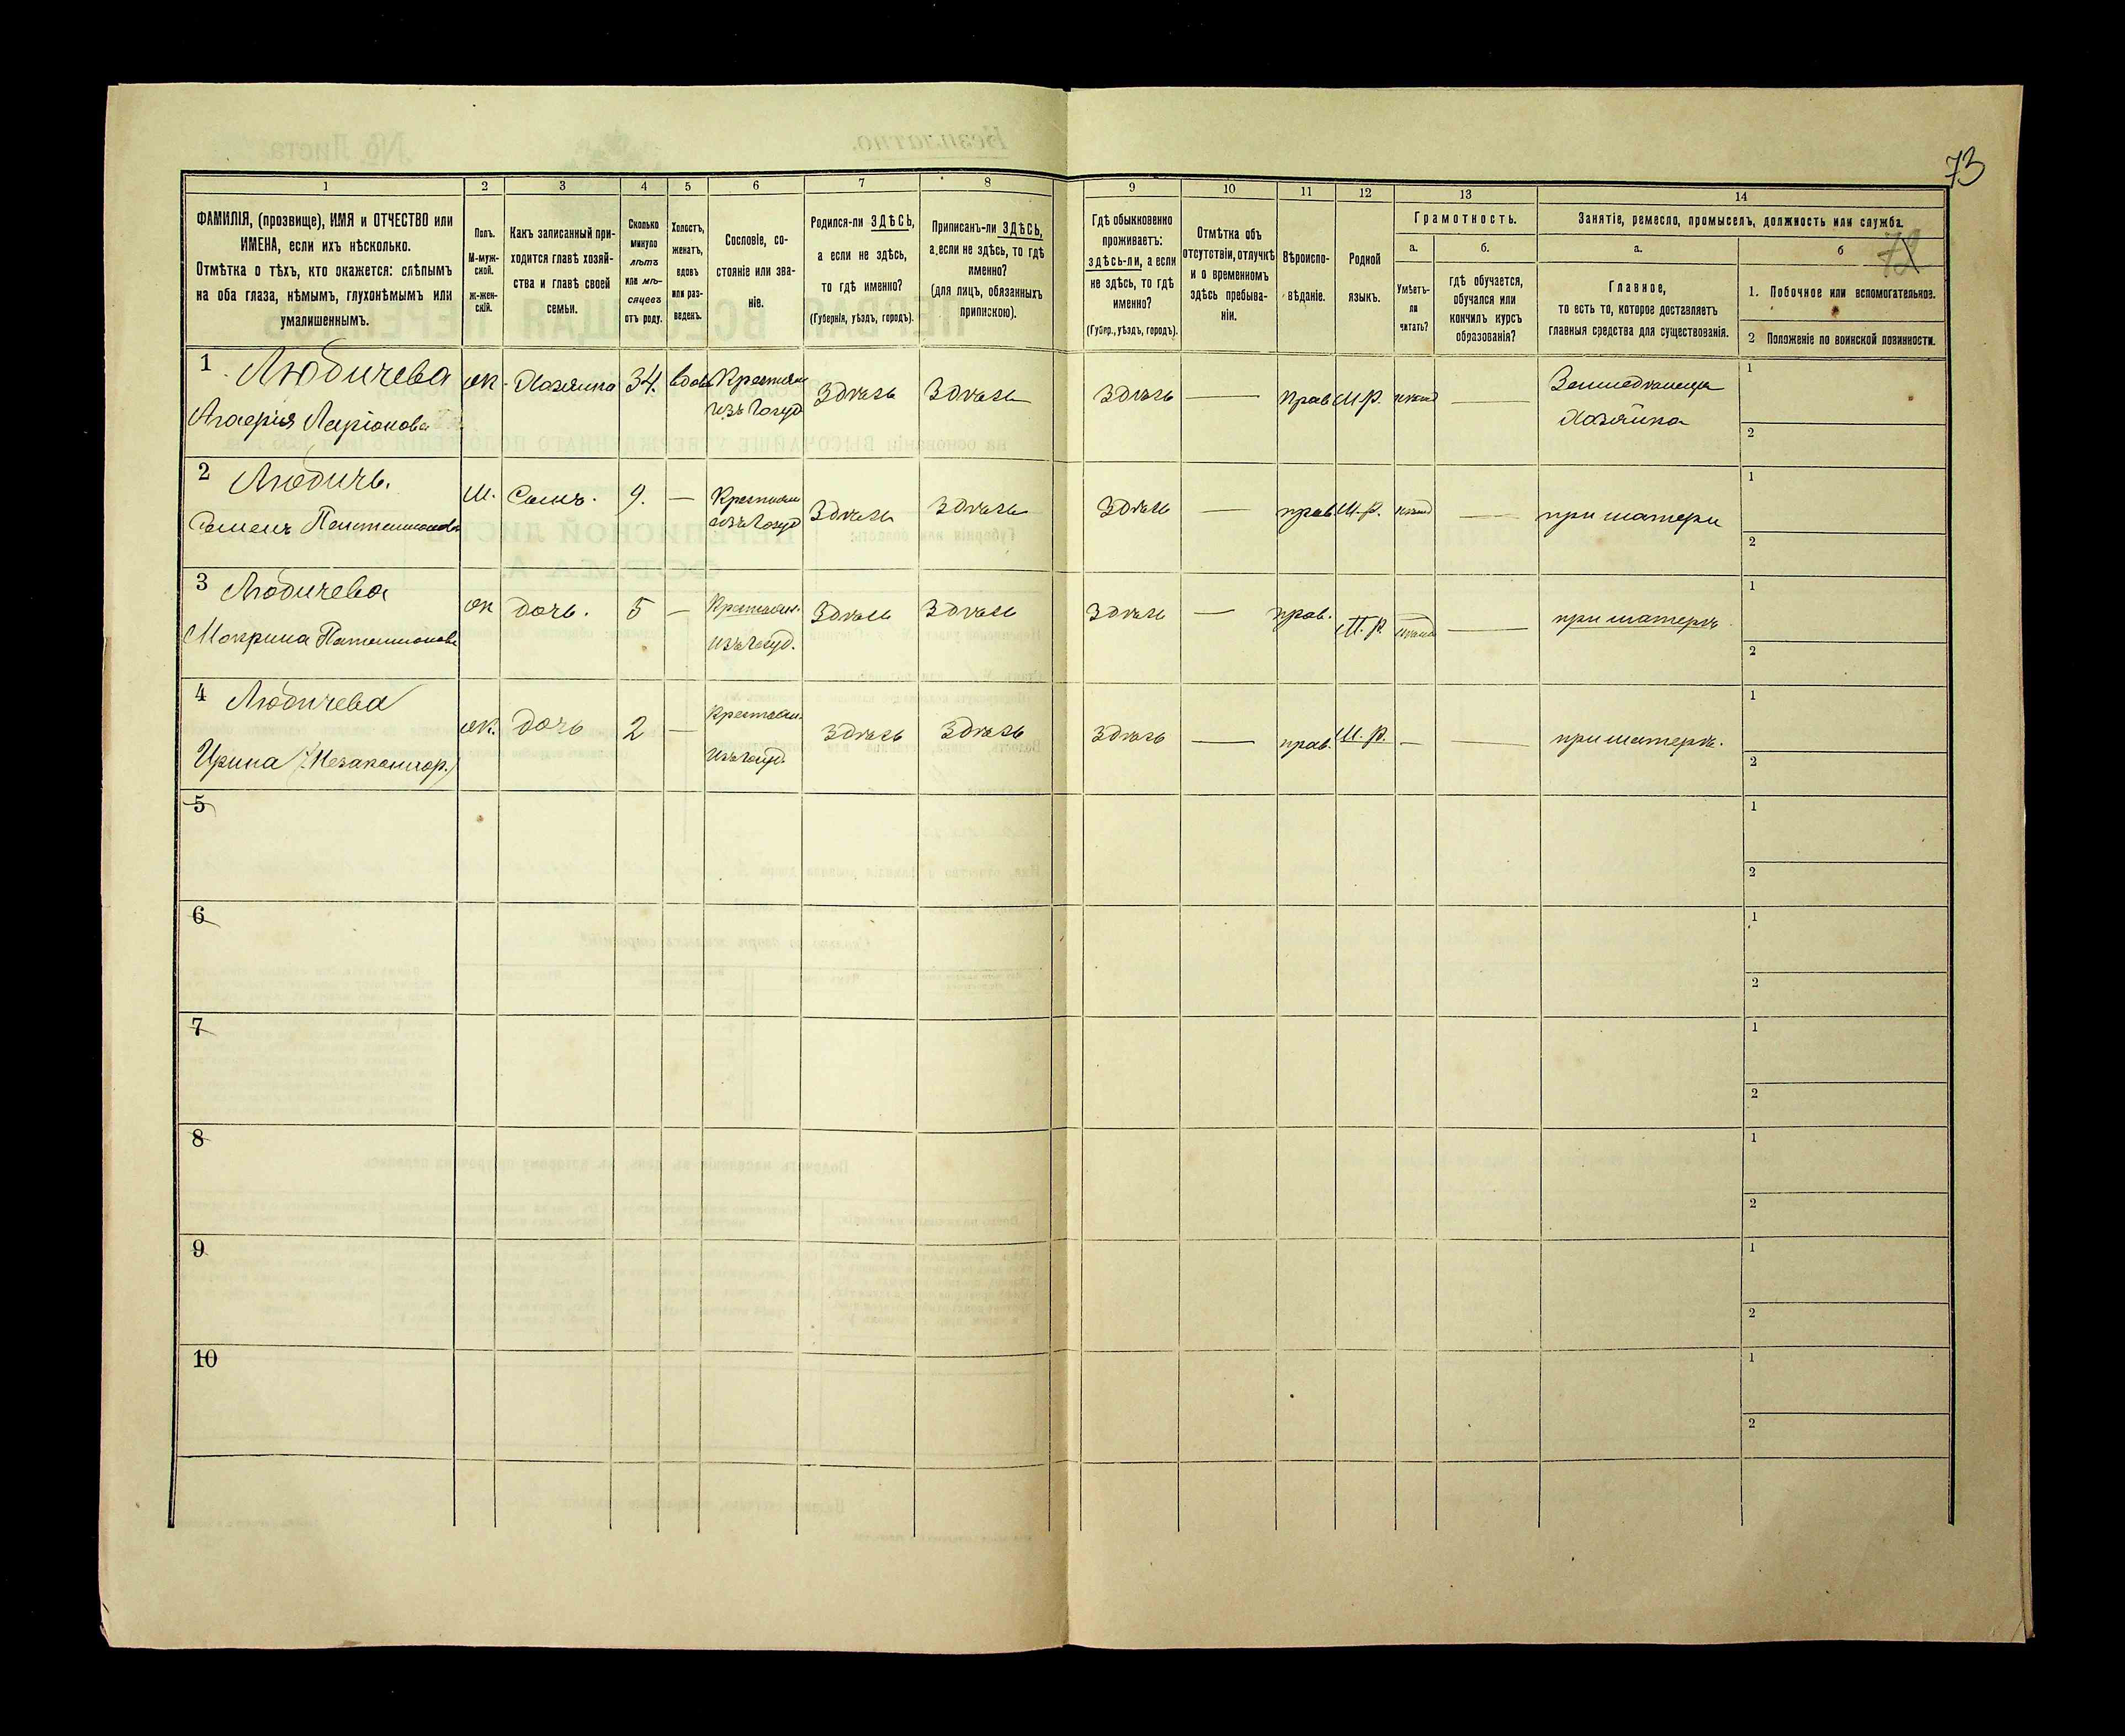 73
1 2 3 4 5 6 7 8 9 10 11 12 13 14
ФАМИЛІЯ, (прозвище), ИМЯ и ОТЧЕСТВО или
ИМЕНА, если ихъ нѣсколько.
Отмѣтка о тѣхъ, кто окажется: слѣпымъ
на оба глаза, нѣмымъ, глухонѣмымъ или
умалишеннымъ.
Полъ.
М-муж-
ской.
ж-жен-
скій.
Какъ записанный при-
ходится главѣ хозяй-
ства и главѣ своей
семьи.
Сколько
минуло
лѣтъ
или мѣ-
сяцевъ
отъ роду.
Холостъ,
женатъ,
вдовъ
или раз-
веденъ.
Сословіе, со-
стояніе или зва-
ніе.
Родился-ли ЗДѢСЬ,
а если не здѣсь,
то гдѣ именно?
(Губернія, уѣздъ, городъ).
Приписанъ-ли ЗДѢСЬ,
а если не здѣсь, то гдѣ
именно?
(для лицъ, обязанныхъ
припискою).
Гдѣ обыкновенно
проживаетъ:
здѣсь-ли, а если
не здѣсь, то гдѣ
именно?
(Губер., уѣздъ, городъ).
Отмѣтка объ
отсутствіи, отлучкѣ
и о временномъ
здѣсь пребыва-
ніи.
Вѣроиспо-
вѣданіе.
Родной
языкъ.
Грамотность.
а.
Умѣетъ-
ли
читать?
б.
гдѣ обучается,
обучался или
кончилъ курсъ
образованія?
Занятіе, ремесло, промыселъ, должность или служба.
а.
Главное,
то есть то, которое доставляетъ
главныя средства для существованія.
б
72
1. Побочное или вспомогательное.
2 Положеніе по воинской повинности.
1 Любичева
Ларіонова
ж. Хозяйка 34. вдова Крестьян
изъ госуд
Здѣсь Здѣсь Здѣсь — Прав М.Р. — Земледѣлица
Хозяйка
1
2
2 Любичъ.
Семенъ
м. Сынъ. 9. — Крестьян
изъ госуд
Здѣсь Здѣсь Здѣсь — прав. М.Р. — при матери
1
2
3 Любичева
Макрина
ж дочь. 5 — Крестьян.
изъ госуд.
Здѣсь Здѣсь Здѣсь — прав. М.Р. — при матерѣ
1
2
4 Любичева
Ирина (Незаконнор.)
ж. дочь 2 — Крестьян.
изъ госуд.
Здѣсь Здѣсь Здѣсь — прав. М.Р. — — при матерѣ.
1
2
5
1
2
6
1
2
7
1
2
8
1
2
9
1
2
10
1
2